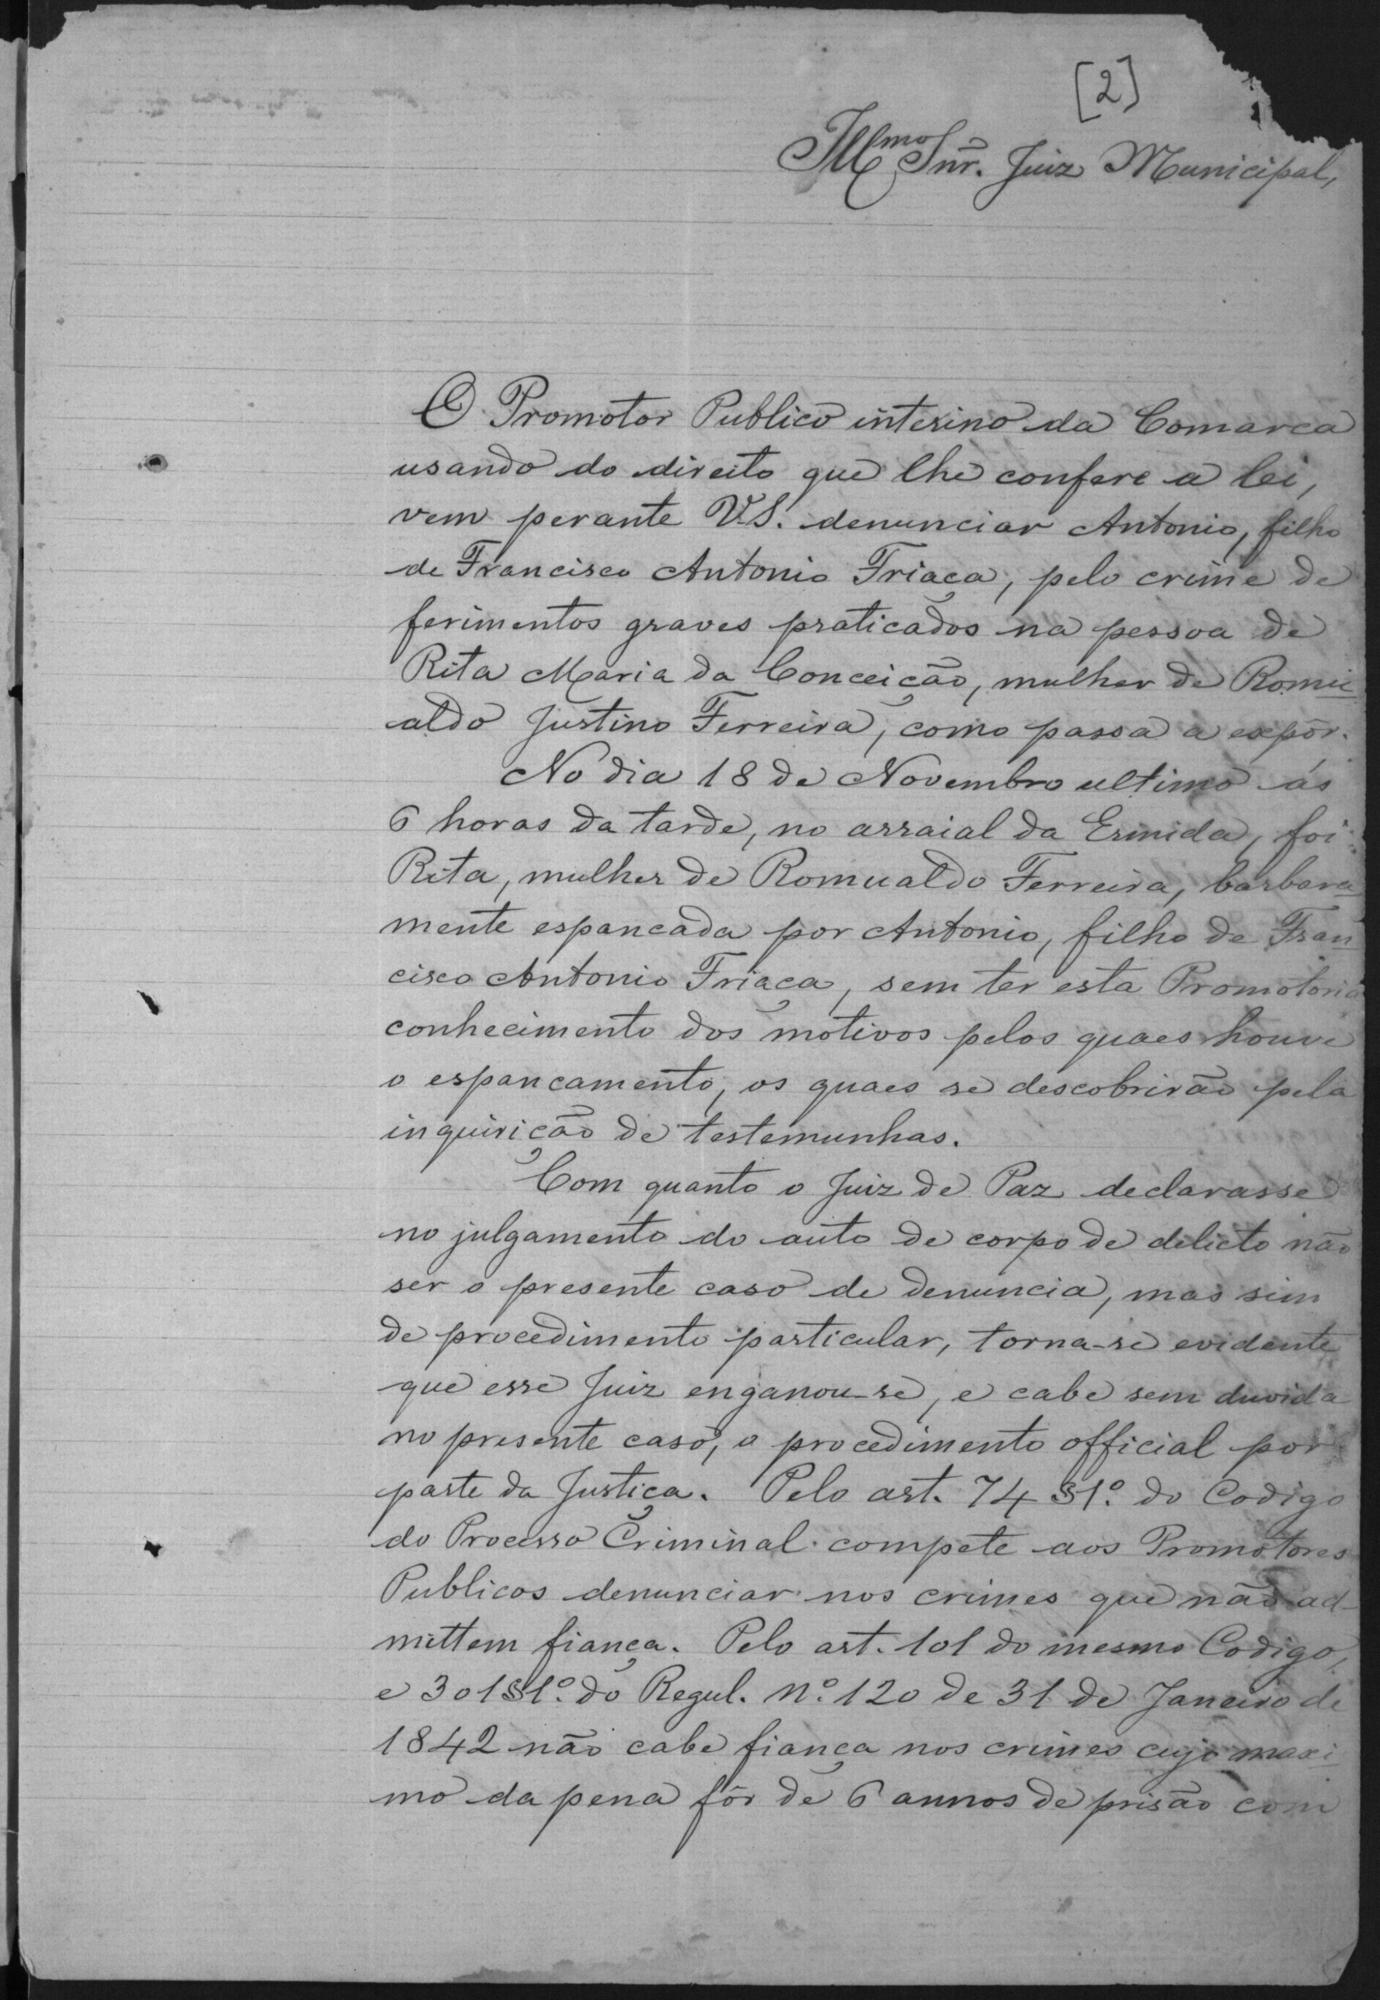 [2]
Illmo Snr. Juiz Municipal,
O Promotor Publico interino da Comarca
usando do direito que lhe confere a lei,
vem perante V.S. denunciar Antonio, filho
de Francisco Antonio Friaça, pelo crime de
ferimentos graves praticados na pessoa de
Rita Maria da Conceição, mulher de Romu
aldo Justino Ferreira, como passa a expôr.
No dia 18 de Novembro ultimo ás
6 horas da tarde, no arraial da Ermida, foi
Rita, mulher de Romualdo Ferreira, barbara
mente espancada por Antonio, filho de Fran
cisco Antonio Friaça, sem ter esta Promotoria
conhecimento dos motivos pelos quaes houve
o espancamento, os quaes se descobrirão pela
inquirição de testemunhas.
Com quanto o Juiz de Paz declarasse
no julgamento do auto de corpo de delicto não
ser o presente caso de denuncia, mas sim
de procedimento particular, torna-se evidente
que esse Juiz enganou-se, e cabe sem duvida
no presente caso, o procedimento official por
parte da Justiça. Pelo art. 74 §1º. do Codigo
do Processo Criminal compete aos Promotores
Publicos denunciar nos crimes que não ad-
mittem fiança. Pelo art. 101 do mesmo Codigo,
e 301 §1º. do Regul. Nº. 120 de 31 de Janeiro de
1842 não cabe fiança nos crimes cujo maxi
mo da pena fôr de 6 annos de prisão com